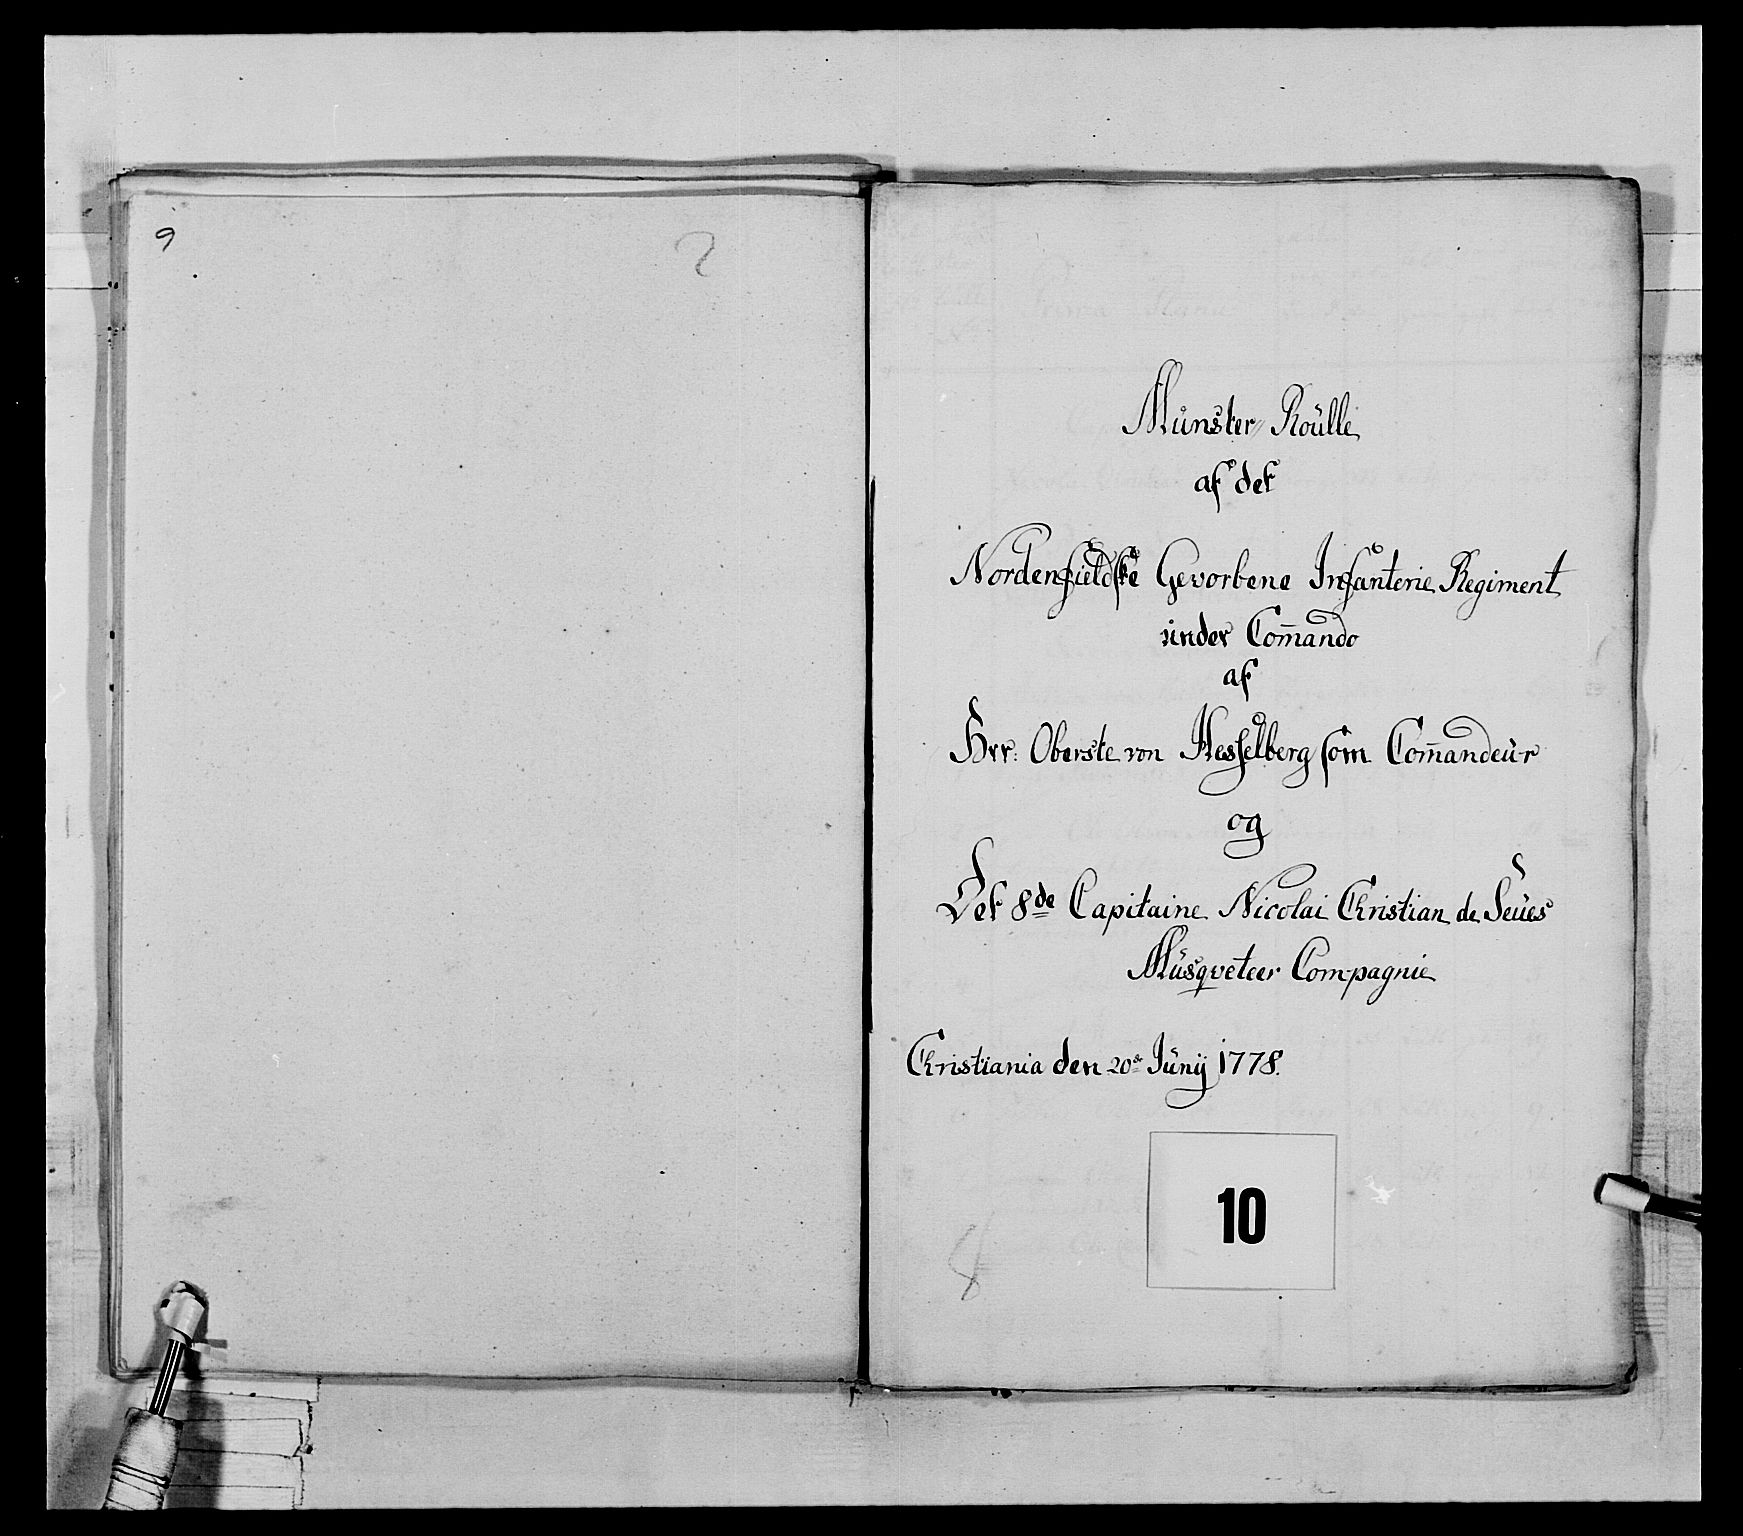 9
2
Münster Roülle
af det
Nordenfieldske Gevorbene Infanterie Regiment
under Com̄ando
af
Hrr: Oberste von Hesselberg som Com̄andeur
og
Det 8de Capitaine Nicolai Christian de Seües
Müsqveteer Compagnie
Christiania den 20de Junij 1778.
10
8